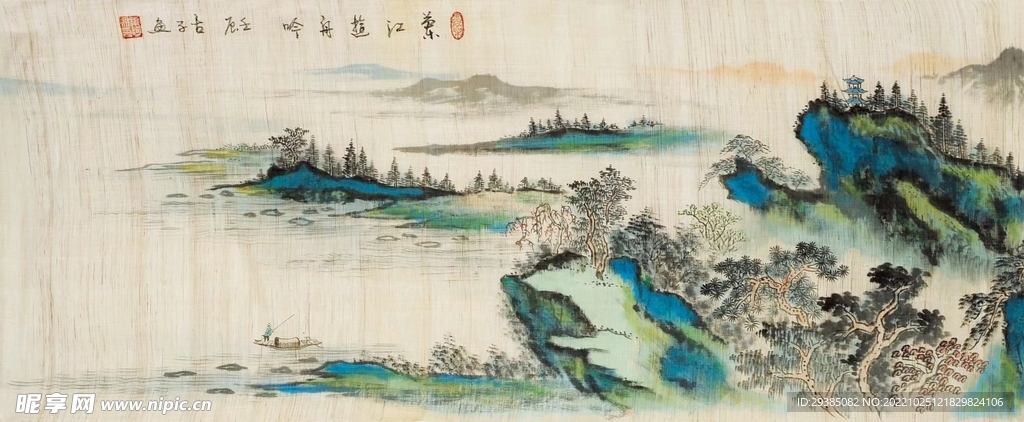 兰江遊舟吟 壬辰 吉子画
昵享网 www.nipic.cn
ID:29385082 NO:20221025121829824106